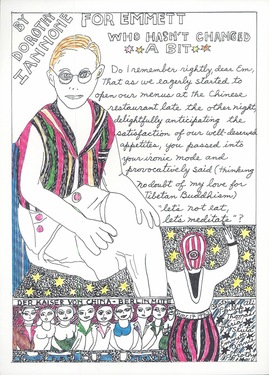 BY
DOROTHY
IANNONE
FOR EMMETT
WHO HASN'T CHANGED
A BIT
Do I remember rightly, dear Em,
That as we eagerly started to
open our menus at the Chinese
restaurant late the other night,
delightfully anticipating the
satisfaction of our well-deserved
appetites, you passed into
your ironic mode and
provocatively said (thinking
no doubt of my love for
Tibetan Buddhism)
"let's not eat,
let's meditate"?
DER KAISER VON CHINA - BERLIN MITTE